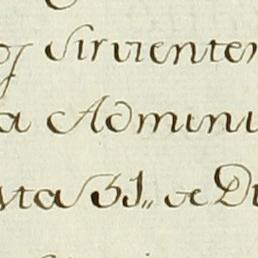 Sirviente
a Admini
sta 31,, de Di